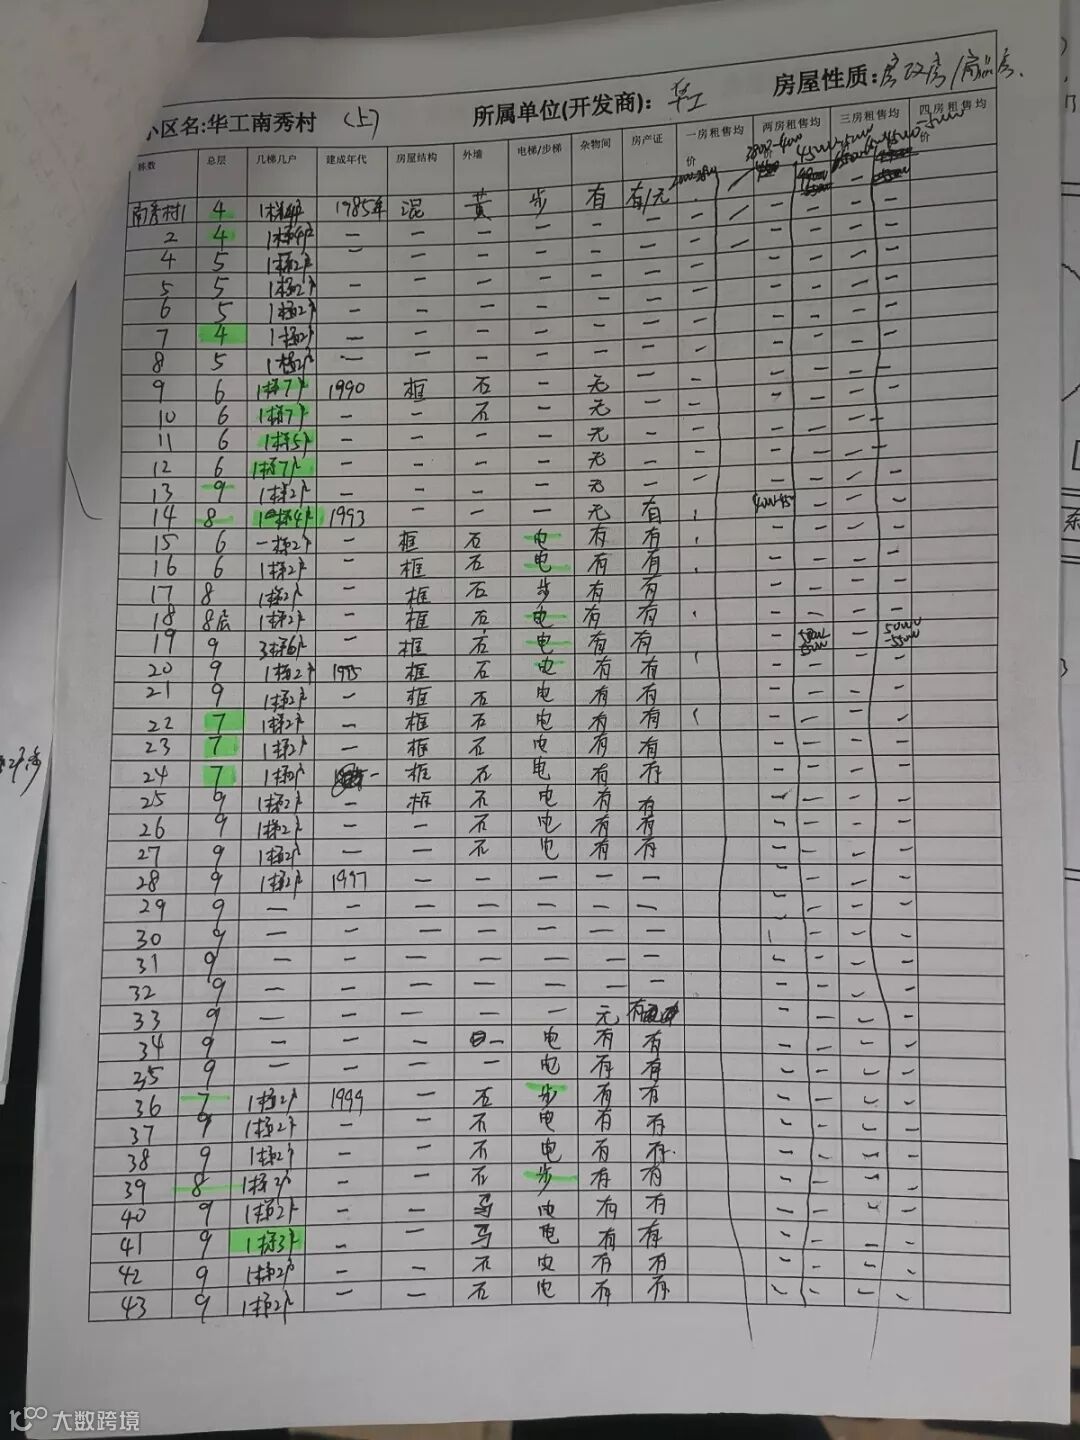 小区名:华工南秀村 (上) 所属单位(开发商): 华工 房屋性质: 房改房/商品房.
栋数 总层 几梯几户 建成年代 房屋结构 外墙 电梯/步梯 杂物间 房产证 一房租售均价 两房租售均价 三房租售均 四房租售均价
南秀村1 4 1梯4户 1985年 混 黄 步 有 有/无
2 4 1梯4户 — — — — — —
4 5 1梯2户 — — — — — —
5 5 1梯2户 — — — — — —
6 5 1梯2户 — — — — — —
7 4 1梯2户 — — — — — —
8 5 1梯2户 — — — — — —
9 6 1梯7户 1990 框 石 — 无 —
10 6 1梯7户 — — 石 — 无
11 6 1梯5户 — — — — 无 —
12 6 1梯7户 — — — — 无 —
13 9 1梯2户 — — — — 无 —
14 8 1梯4户 1993 — — — 无 有
15 6 一梯2户 — 框 石 电 有 有
16 6 1梯2户 — 框 石 电 有 有
17 8 1梯2户 — 框 石 步 有 有
18 8层 1梯2户 — 框 石 电 有 有
19 9 3梯6户 — 框 石 电 有 有
20 9 1梯2户 1995 框 石 电 有 有
21 9 1梯2户 — 框 石 电 有 有
22 7 1梯2户 — 框 石 电 有 有
23 7 1梯2户 — 框 石 电 有 有
24 7 1梯2户 — 框 石 电 有 有
25 9 1梯2户 — 框 石 电 有 有
26 9 1梯2户 — — 石 电 有 有
27 9 1梯2户 — — 石 电 有 有
28 9 1梯2户 1997 — — — — —
29 9 — — — — — — —
30 9 — — — — — — —
31 9 — — — — — — —
32 9 — — — — — — —
33 9 — — — — — 无 有
34 9 — — — — 电 有 有
35 9 — — — — 电 有 有
36 7 1梯2户 1999 — 石 步 有 有
37 9 1梯2户 — — 石 电 有 有
38 9 1梯2户 — — 石 电 有 有.
39 8 1梯2户 — — 石 步 有 有
40 9 1梯2户 — — 马 电 有 有
41 9 1梯3户 — — 马 电 有 有
42 9 1梯2户 — — 石 电 有 有
43 9 1梯2户 — — 石 电 有 有
大数跨境